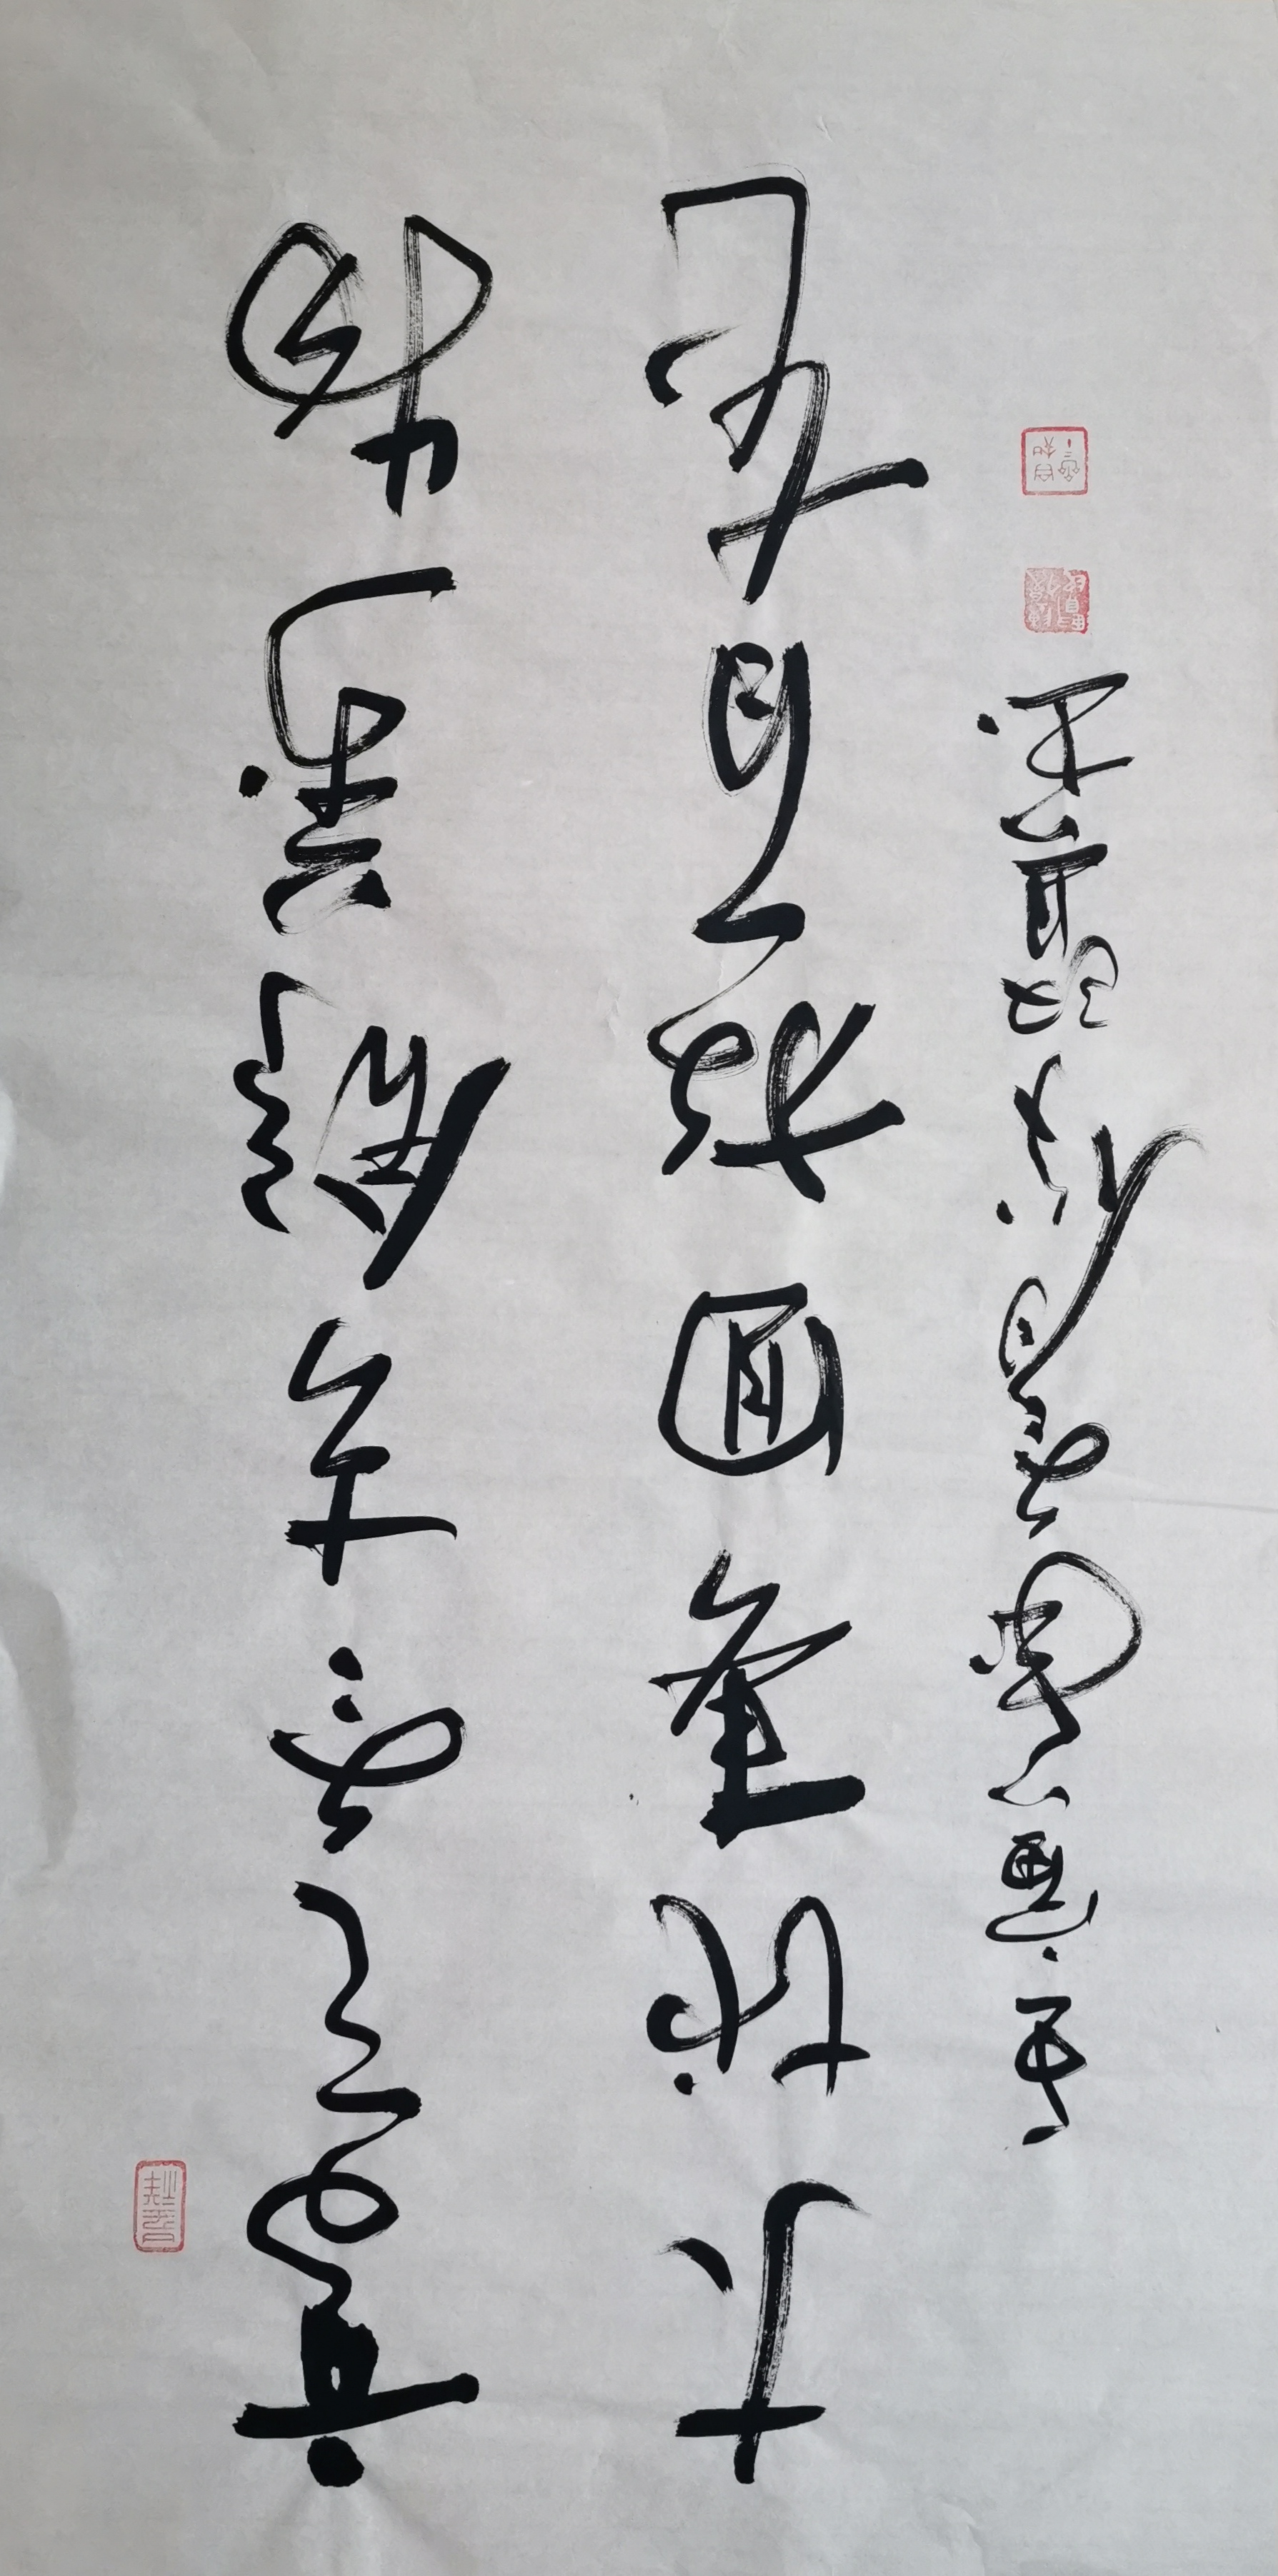 高天冬去舒萬物
大地春回放百花
壬寅年冬月俊賢書
呈祥
自知